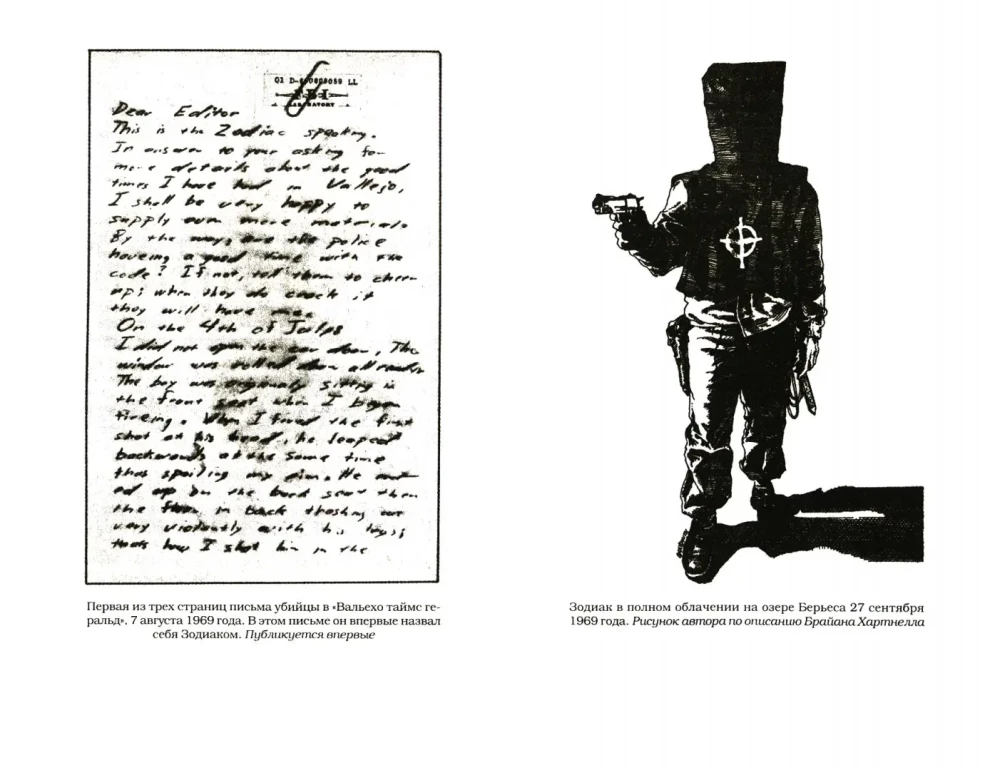 G1 D-
FBI
LABORATORY
Dear Editor
This is the Zodiac speaking.
In answer to your asking for
more details about the good
times I have had in Vallejo,
I shall be very happy to
supply even more material.
By the way, are the police
haveing a good time with the
code? If not, tell them to cheer
up; when they do crack it
they will have me.
On the 4th of July:
I did not open the car door, The
window was rolled down all ready
The boy was origionaly sitting in
the front seat when I began
fireing. When I fired the first
shot at his head, he leaped
backwards at the same time
thus spoiling my aim. He end-
ed up on the back seat then
the floor in back thashing out
very violently with his legs;
thats how I shot him in the
Первая из трех страниц письма убийцы в «Вальехо таймс ге-
ральд», 7 августа 1969 года. В этом письме он впервые назвал
себя Зодиаком. Публикуется впервые
Зодиак в полном облачении на озере Берьеса 27 сентября
1969 года. Рисунок автора по описанию Брайана Хартнелла